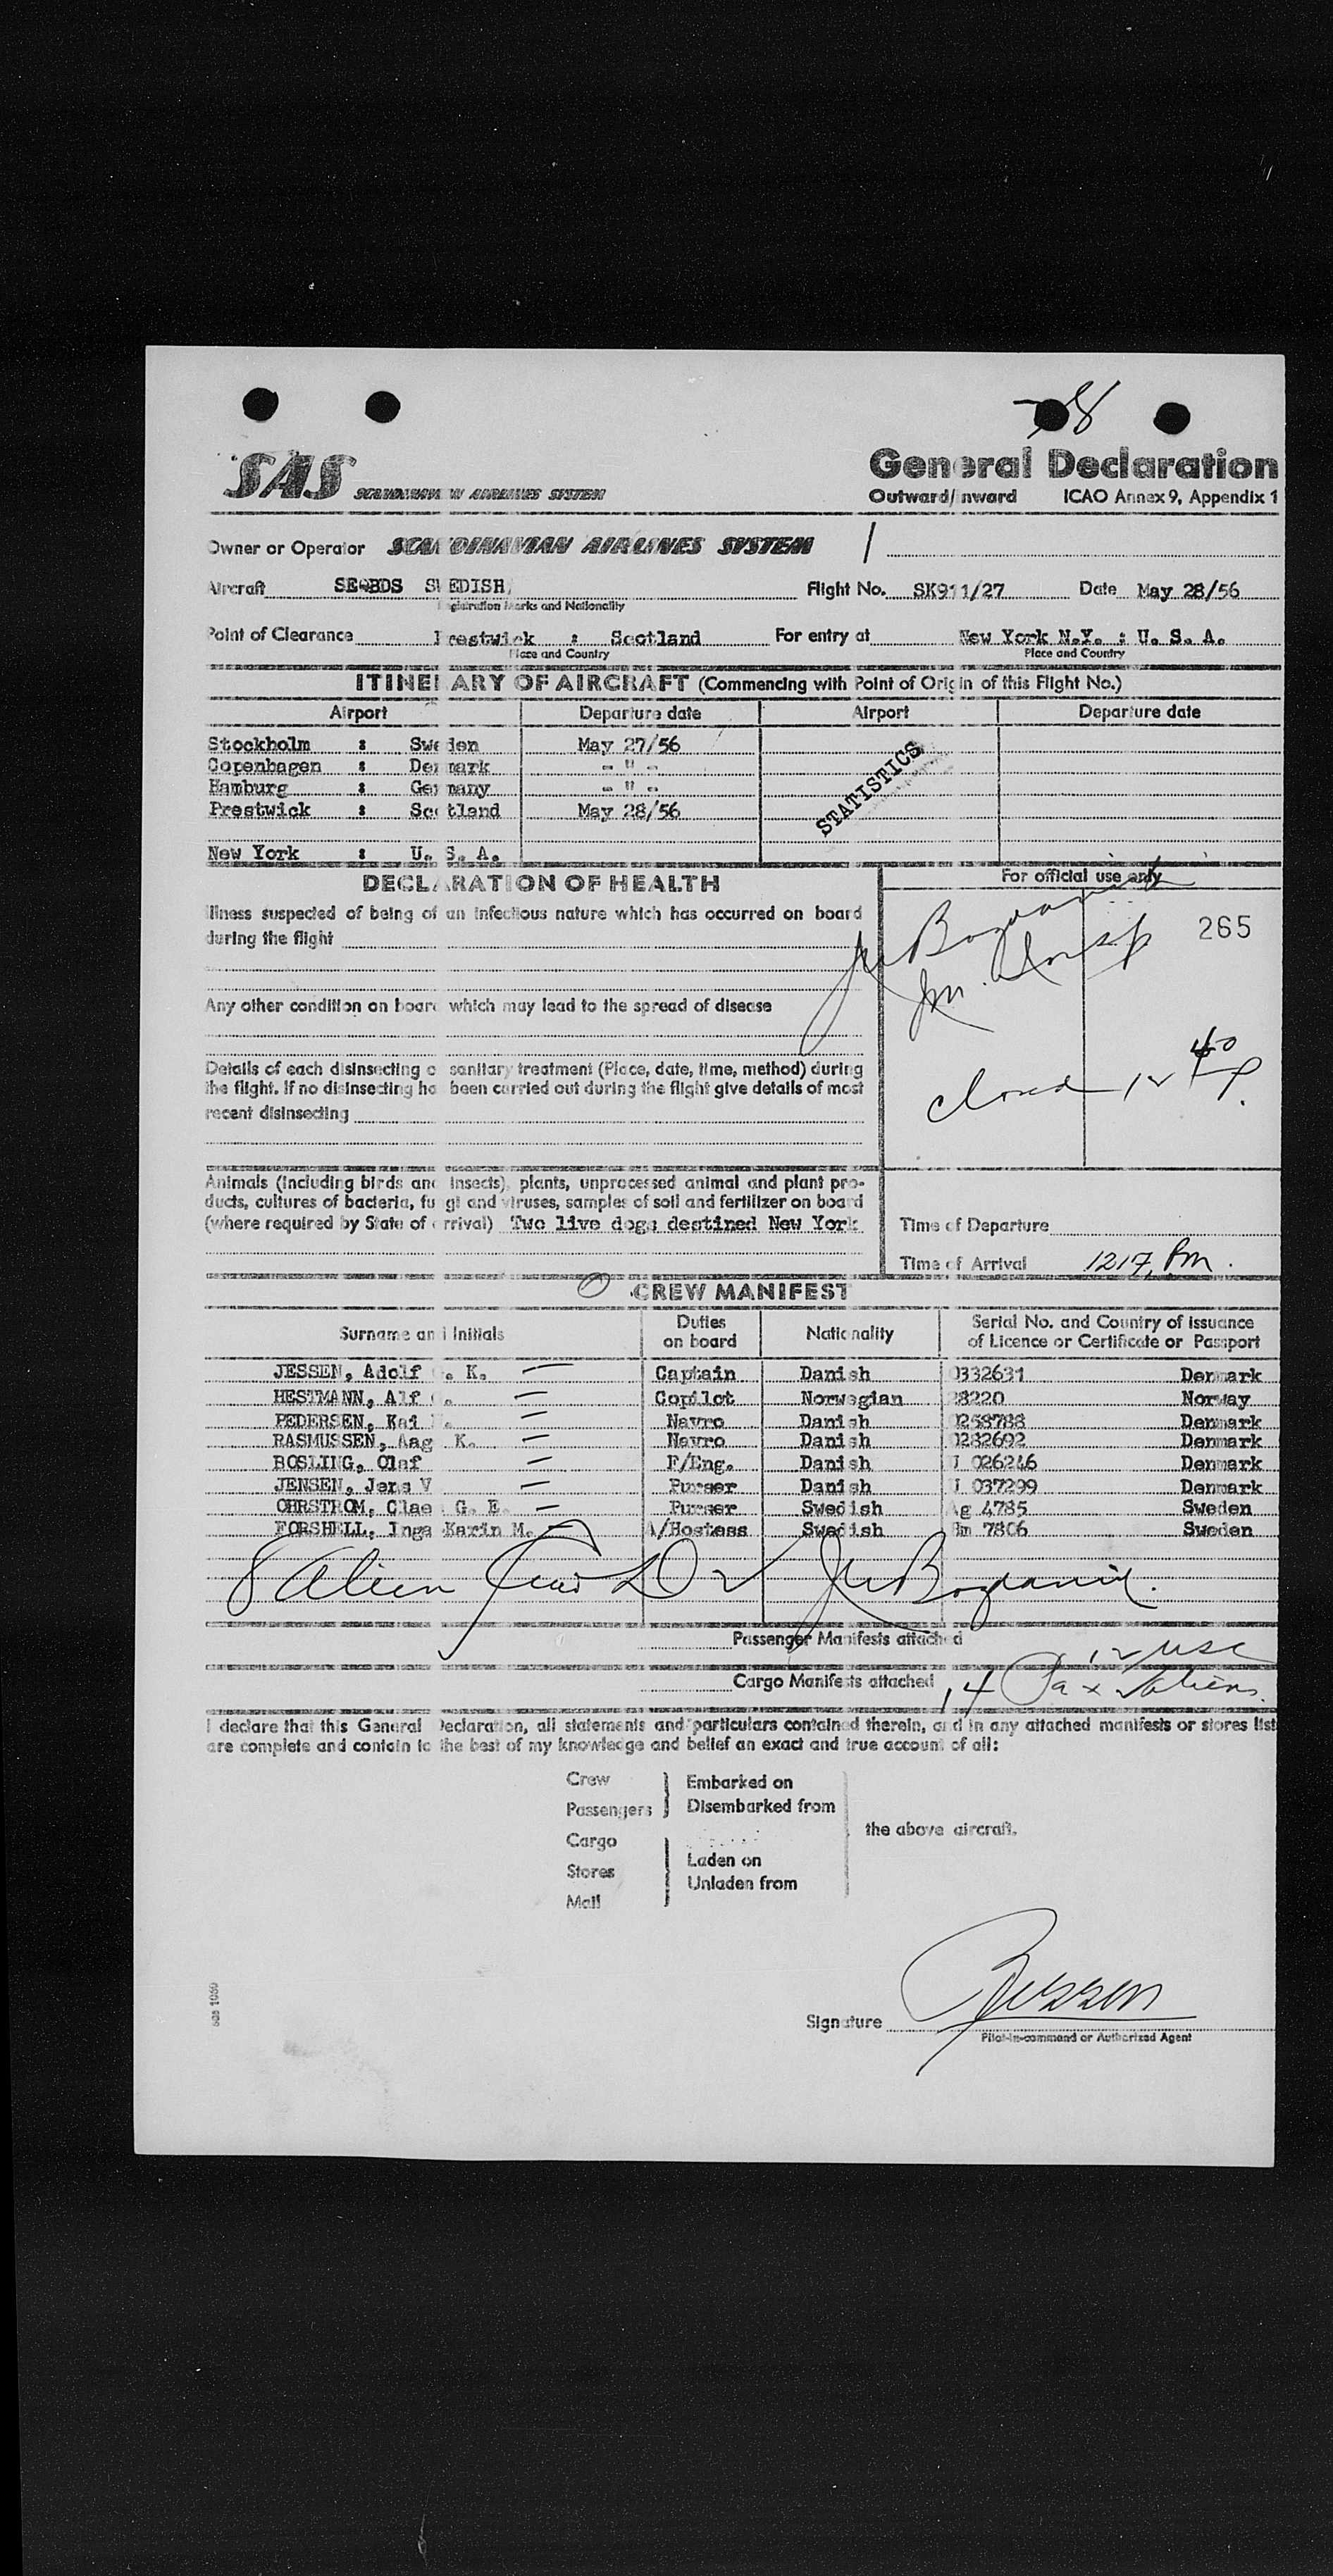 SAS SCANDINAVIAN AIRLINES SYSTEM
General Declaration
Outward/Inward ICAO Annex 9, Appendix 1
Owner or Operator SCANDINAVIAN AIRLINES SYSTEM
Aircraft SE-BDS SWEDISH Flight No. SK911/27 Date May 28/56
Registration Marks and Nationality
Point of Clearance Prestwick : Scotland For entry at New York N.Y. : U. S. A.
Place and Country Place and Country
ITINERARY OF AIRCRAFT (Commencing with Point of Origin of this Flight No.)
Airport Departure date Airport Departure date
Stockholm : Sweden May 27/56
Copenhagen : Denmark - " -
Hamburg : Germany - " -
Prestwick : Scotland May 28/56
STATISTICS
New York : U. S. A.
DECLARATION OF HEALTH
Illness suspected of being of an infectious nature which has occurred on board
during the flight
Any other condition on board which may lead to the spread of disease
Details of each disinsecting or sanitary treatment (Place, date, time, method) during
the flight. If no disinsecting has been carried out during the flight give details of most
recent disinsecting
Animals (including birds and insects), plants, unprocessed animal and plant pro-
ducts, cultures of bacteria, fungi and viruses, samples of soil and fertilizer on board
(where required by State of arrival) Two live dogs destined New York
For official use only
265
Time of Departure
Time of Arrival 1217 Pm.
CREW MANIFEST
Surname and Initials Duties on board Nationality Serial No. and Country of issuance of Licence or Certificate or Passport
JESSEN, Adolf . K. Captain Danish 0332631 Denmark
HESTMANN, Alf . Copilot Norwegian 8220 Norway
PEDERSEN, Kai . Navro Danish 0258788 Denmark
RASMUSSEN, Aag K. Navro Danish 0282602 Denmark
BOSLING, Olaf F/Eng. Danish 026246 Denmark
JENSEN, Jens V Purser Danish 037299 Denmark
OHRSTROM, Clae G. E. Purser Swedish Ag 4785 Sweden
FORSHELL, Inga Karin M. A/Hostess Swedish Hm 7806 Sweden
8 Alien
Passenger Manifests attached
12 USC
Cargo Manifests attached
14 Pax Aliens
I declare that this General Declaration, all statements and particulars contained therein, and in any attached manifests or stores list
are complete and contain to the best of my knowledge and belief an exact and true account of all:
Crew
Passengers
Embarked on
Disembarked from
Cargo
Stores
Mail
Laden on
Unladen from
the above aircraft.
Signature
Pilot-in-command or Authorized Agent
sas 1080